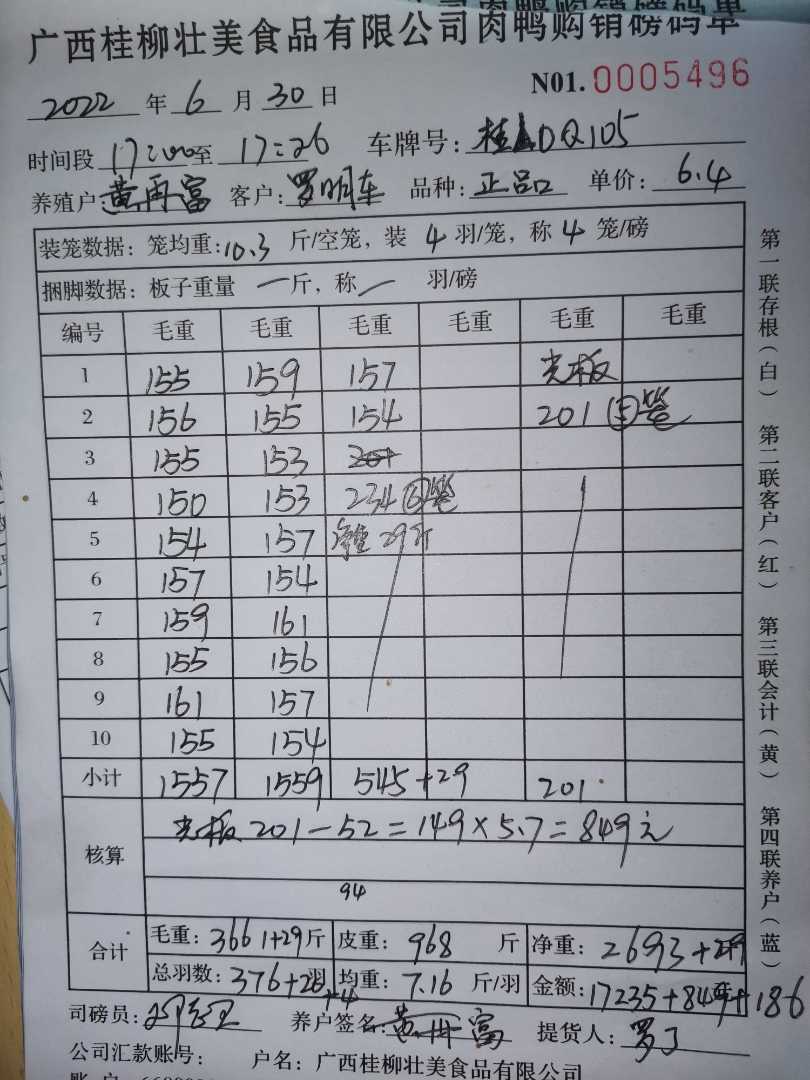 广西桂柳壮美食品有限公司肉鸭购销磅码单
N01. 0005496
2022 年 6 月 30 日
时间段 17:00 至 17:26 车牌号: DQ105
养殖户: 黄再富 客户: 罗明车 品种: 正品 单价: 6.4
装笼数据: 笼均重: 10.3 斤/空笼, 装 4 羽/笼, 称 4 笼/磅
捆脚数据: 板子重量 一 斤, 称 一 羽/磅
编号 毛重 毛重 毛重 毛重 毛重 毛重
1 155 159 157 光板
2 156 155 154 201 ⑤笼
3 155 153
4 150 153 234 ⑥笼
5 154 157 净重 29斤
6 157 154
7 159 161
8 155 156
9 161 157
10 155 154
小计 1557 1559 545 +29 201
核算 光板 201-52=149×5.7=849元
94
合计 毛重: 3661+29 斤 皮重: 968 斤 净重: 2693+29
总羽数: 376+20羽 +4 均重: 7.16 斤/羽 金额: 17235+849+186
司磅员: 养户签名: 黄再富 提货人: 罗
公司汇款账号: 户名: 广西桂柳壮美食品有限公司
第一联存根(白) 第二联客户(红) 第三联会计(黄) 第四联养户(蓝)